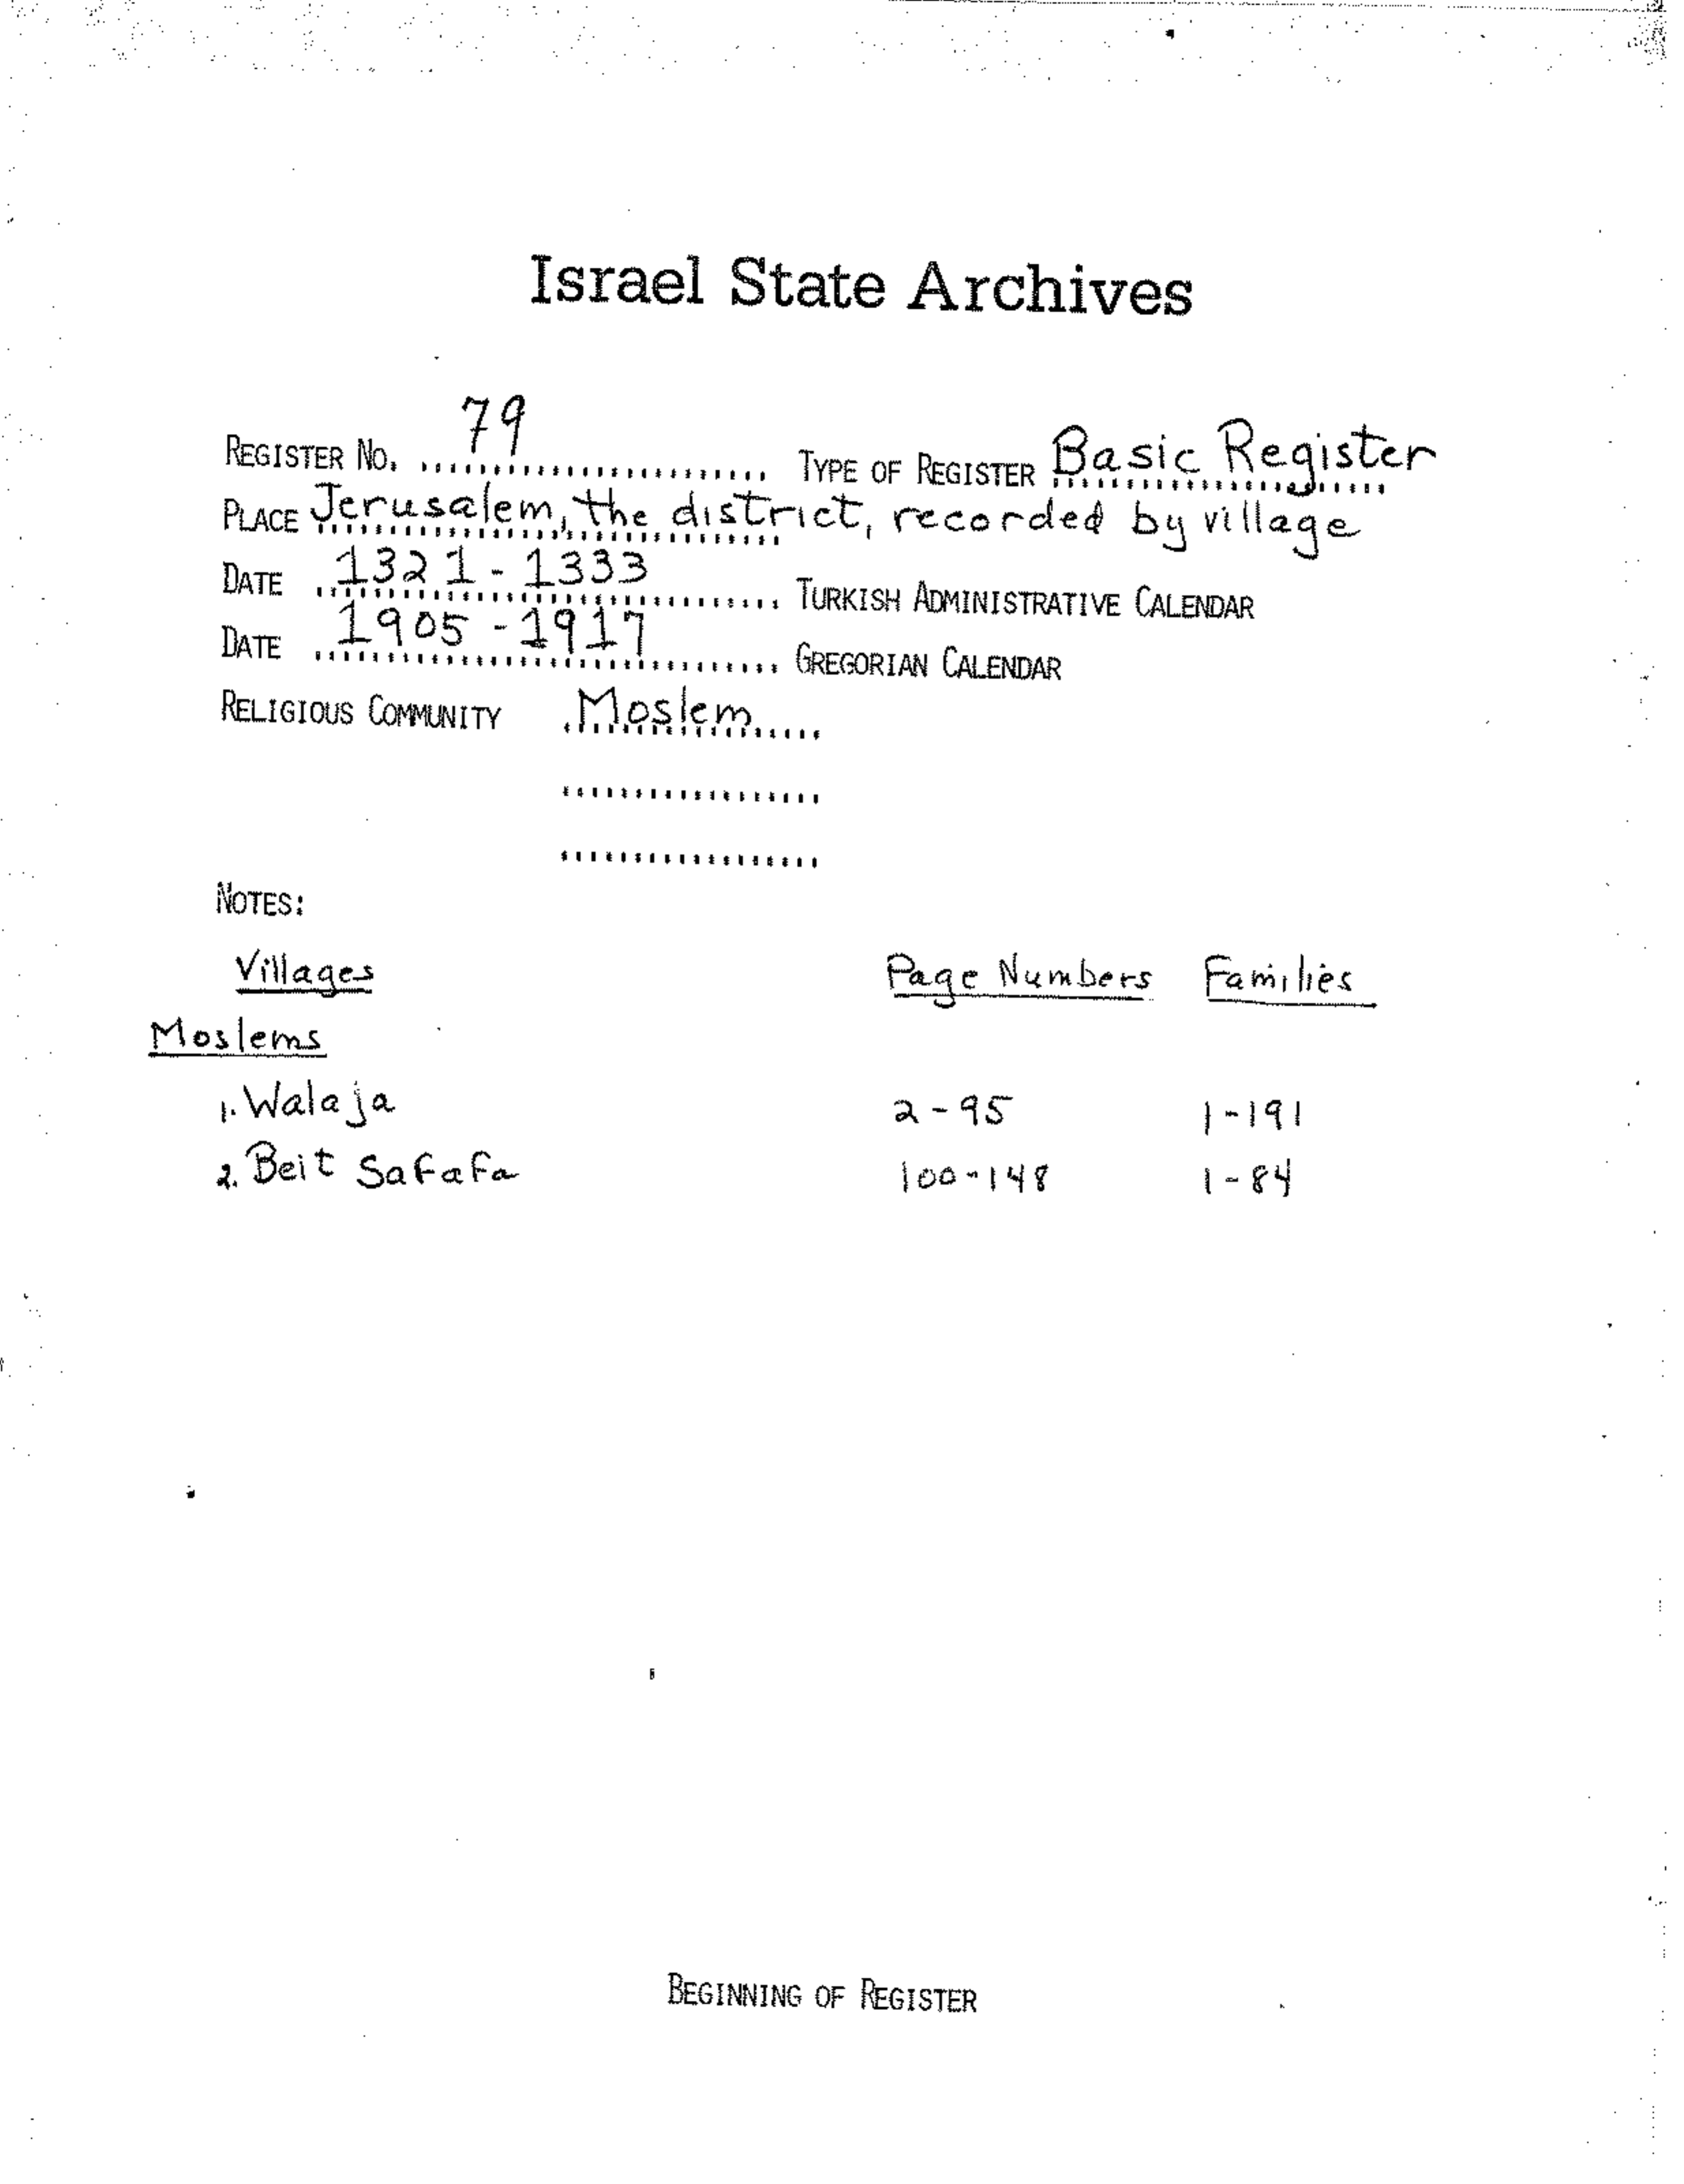 Israel State Archives
REGISTER NO. 79 TYPE OF REGISTER Basic Register
PLACE Jerusalem, the district, recorded by village
DATE 1321-1333 TURKISH ADMINISTRATIVE CALENDAR
DATE 1905-1917 GREGORIAN CALENDAR
RELIGIOUS COMMUNITY Moslem
NOTES:
Villages Page Numbers Families
Moslems
1. Walaja 2-95 1-191
2. Beit Safafa 100-148 1-84
BEGINNING OF REGISTER